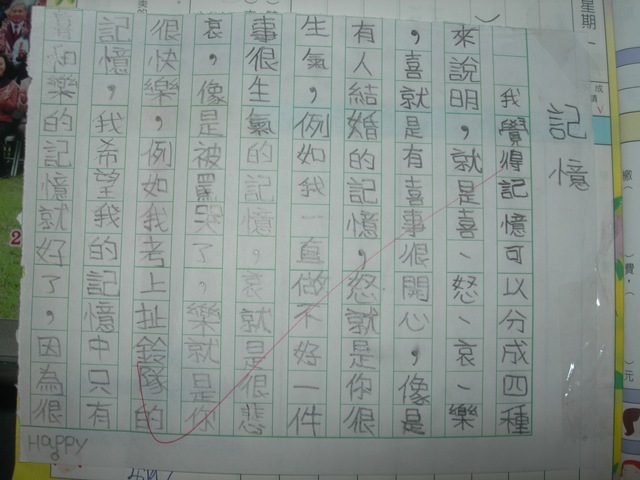 記憶
我覺得記憶可以分成四種
來說明，就是喜、怒、哀、樂
，喜就是有喜事很開心，像是
有人結婚的記憶，怒就是你很
生氣，例如我一直做不好一件
事很生氣的記憶，哀就是很悲
哀，像是被罵哭了，樂就是你
很快樂，例如我考上扯鈴隊的
記憶，我希望我的記憶中只有
喜和樂的記憶就好了，因為很
Happy
星期一